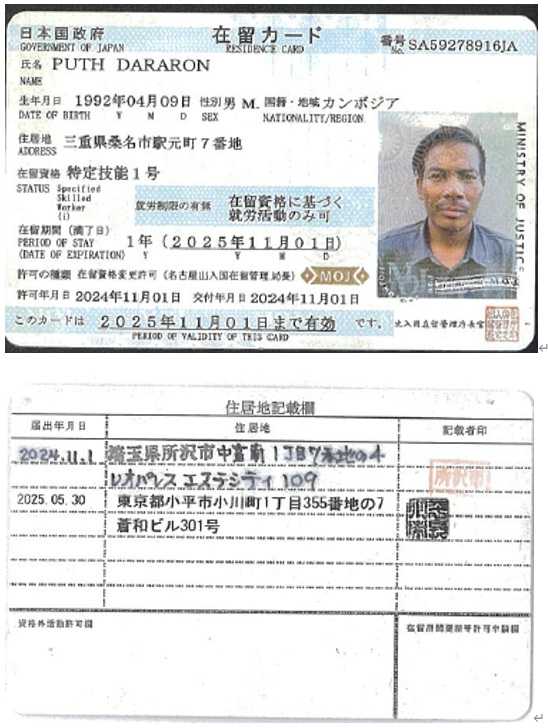 日本国政府 在留カード 番号 SA59278916JA
GOVERNMENT OF JAPAN RESIDENCE CARD No.
氏名 PUTH DARARON
NAME
生年月日 1992年04月09日 性別 男 M. 国籍・地域 カンボジア
DATE OF BIRTH Y M D SEX NATIONALITY/REGION
住居地 三重県桑名市駅元町7番地
ADDRESS
在留資格 特定技能1号
STATUS Specified Skilled Worker (i)
就労制限の有無 在留資格に基づく就労活動のみ可
在留期間(満了日) 1年(2025年11月01日)
PERIOD OF STAY (DATE OF EXPIRATION) Y Y M D
許可の種類 在留資格変更許可(名古屋出入国在留管理局長) MOJ
許可年月日 2024年11月01日 交付年月日 2024年11月01日
このカードは 2025年11月01日まで有効 です。
PERIOD OF VALIDITY OF THIS CARD
出入国在留管理庁長官
MINISTRY OF JUSTICE
MOJ
住居地記載欄
届出年月日 住居地 記載者印
2024.11.1 埼玉県所沢市中富南1丁目7番地の4
レオパレス エステシティ 109
所沢市
2025.05.30 東京都小平市小川町1丁目355番地の7
蒼和ビル301号
資格外活動許可欄 在留期間更新等許可申請欄